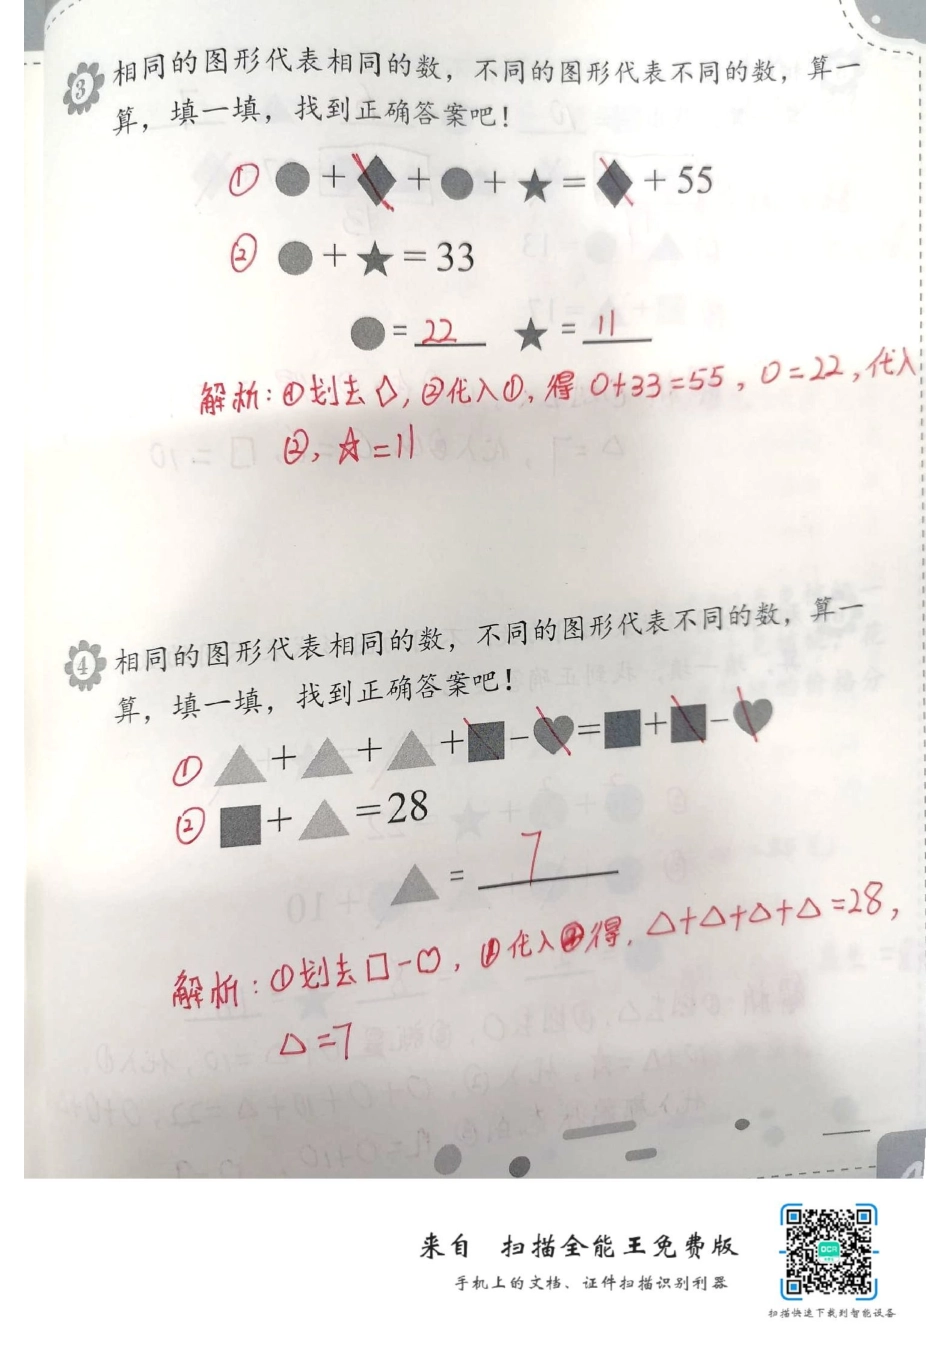 3 相同的图形代表相同的数，不同的图形代表不同的数，算一
算，填一填，找到正确答案吧！
① ●+◆+●+★=◆+55
② ●+★=33
●=22 ★=11
解析：①划去◇，②代入①，得○+33=55，○=22，代入
②，☆=11
4 相同的图形代表相同的数，不同的图形代表不同的数，算一
算，填一填，找到正确答案吧！
① ▲+▲+▲+■-♥=■+■-♥
② ■+▲=28
▲=7
解析：①划去□-♡，①代入②得，△+△+△+△=28，
△=7
来自 扫描全能王免费版
手机上的文档、证件扫描识别利器
扫描快速下载到智能设备